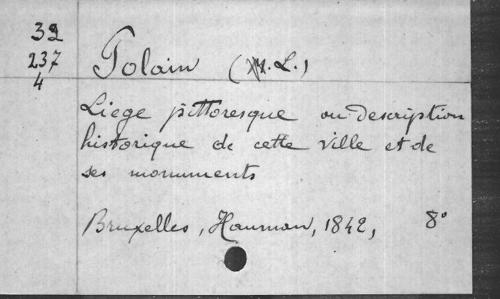 32
237
4
Polain (M. L.)
Liege pittoresque ou description
historique de cette ville et de
ses monuments
Bruxelles, Hauman, 1842, 8°